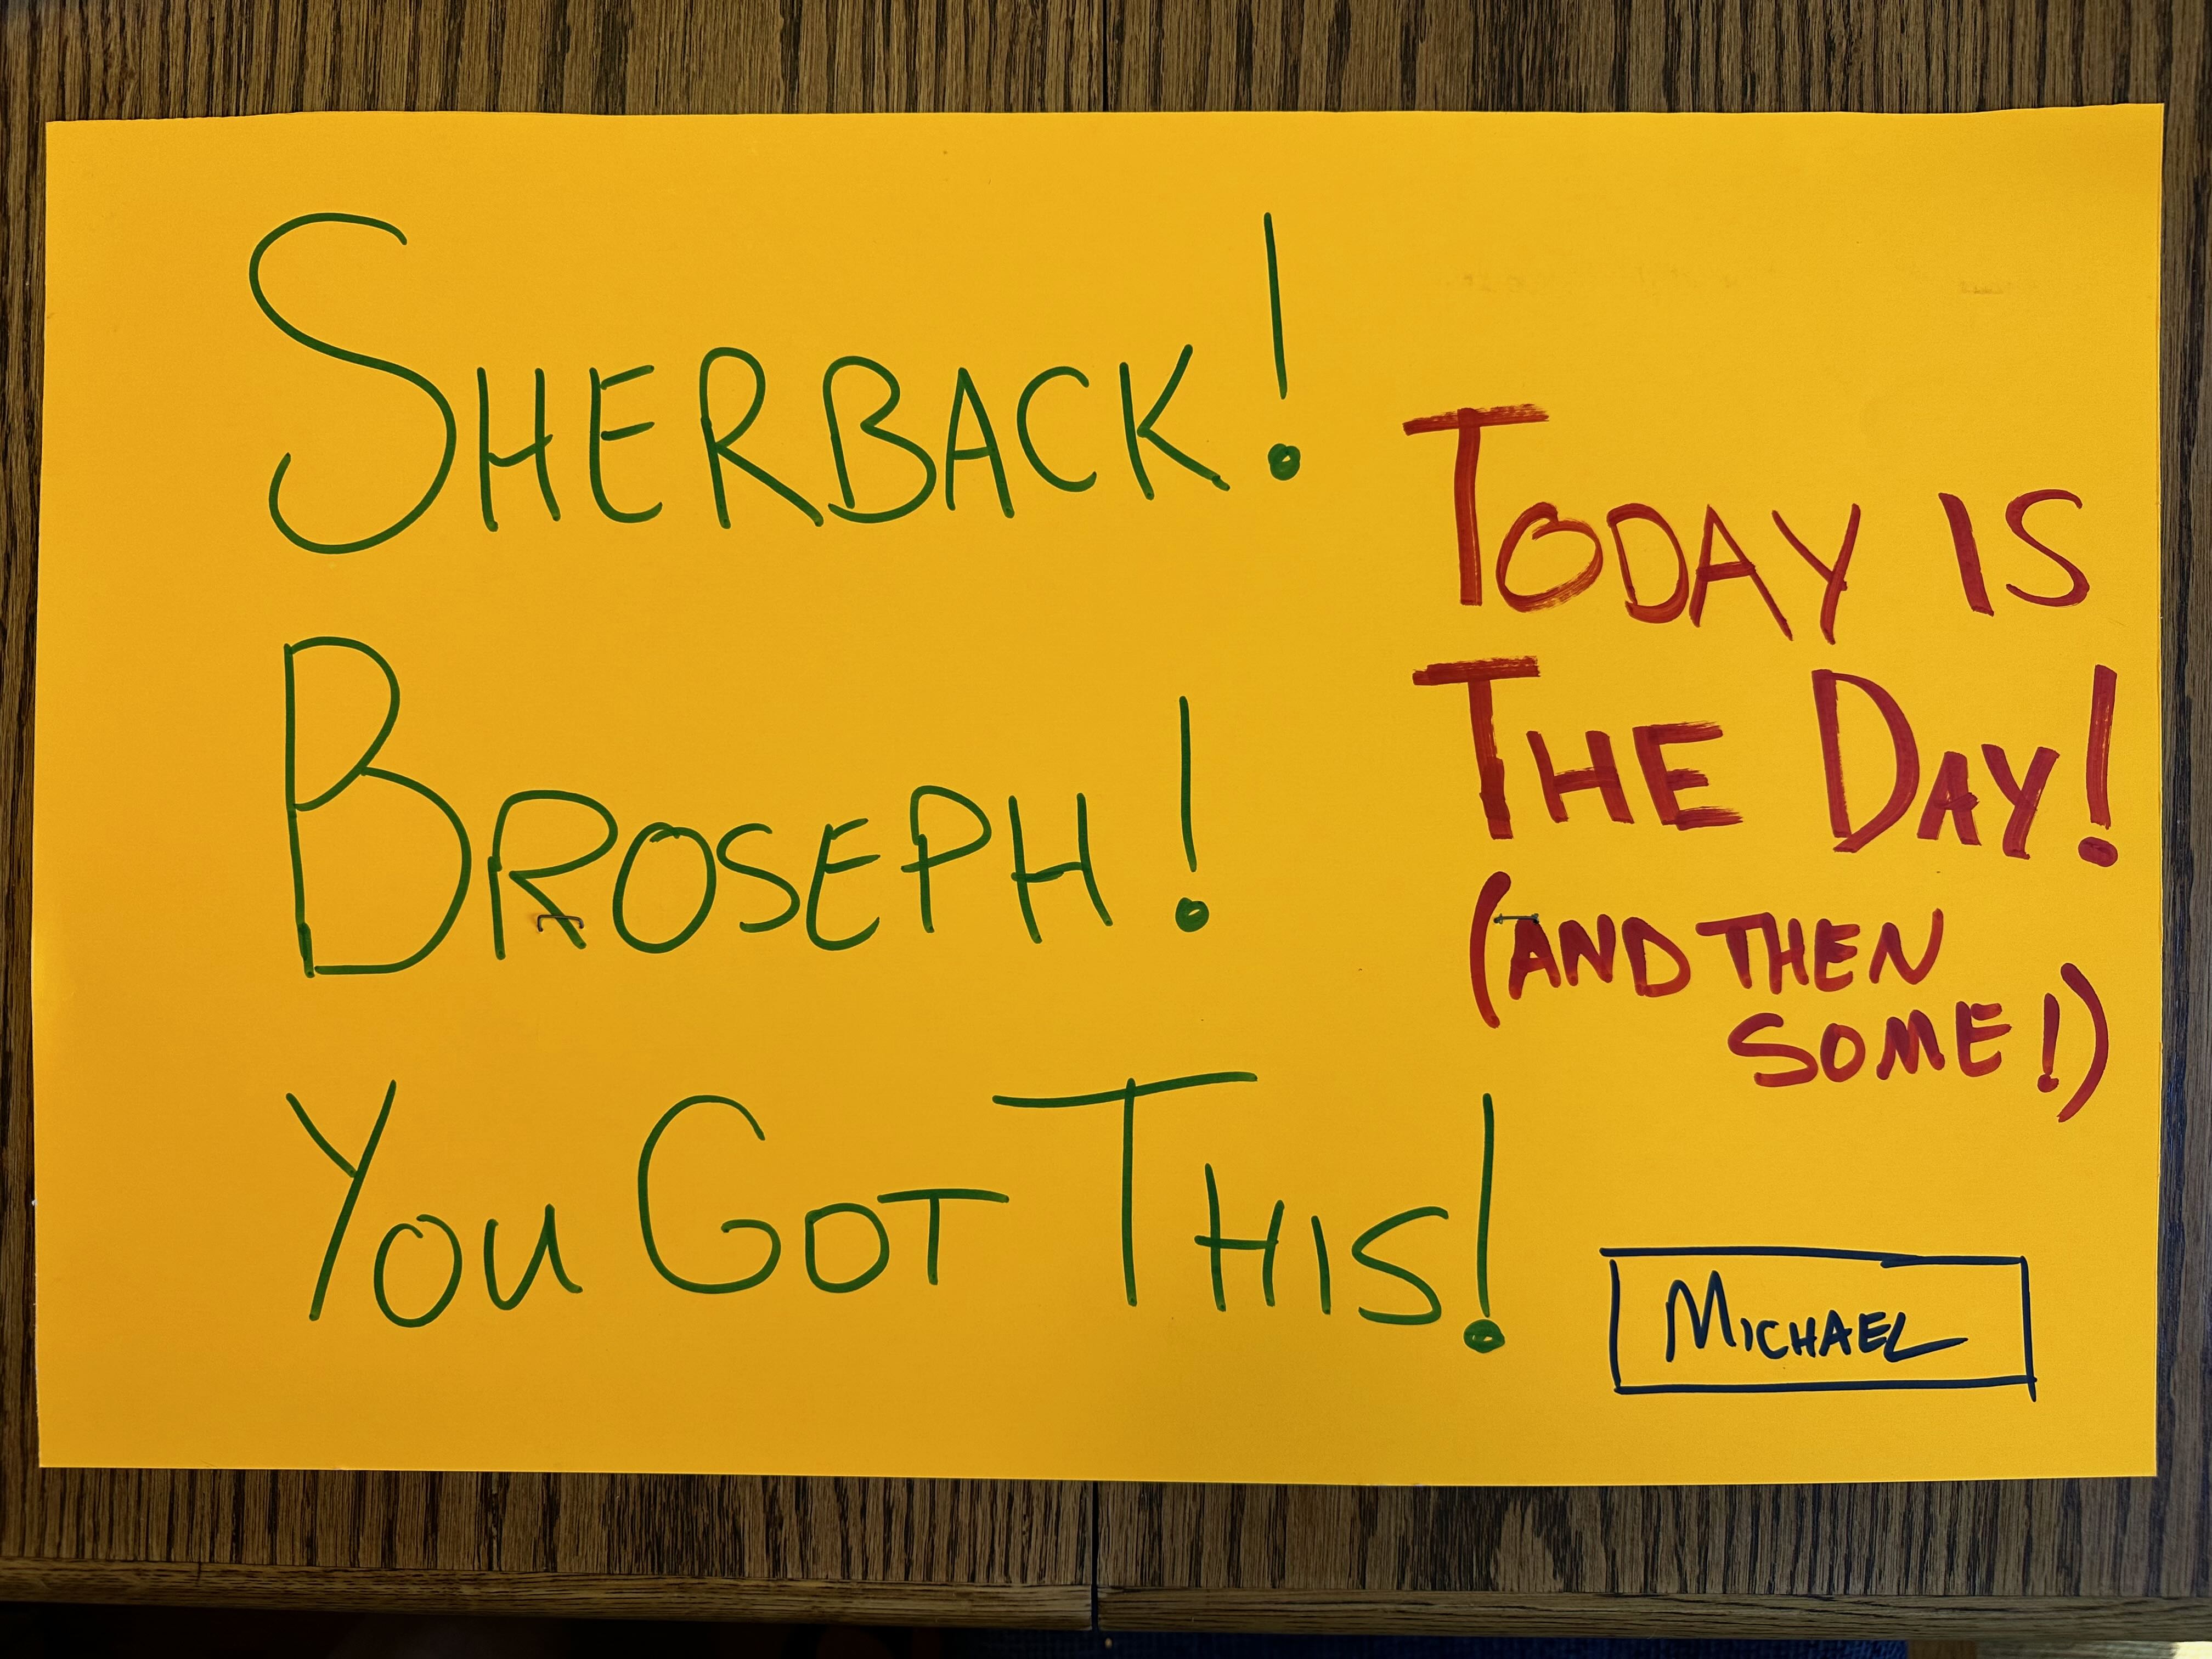 SHERBACK!
BROSEPH!
YOU GOT THIS!
TODAY IS
THE DAY!
(AND THEN
SOME!)
MICHAEL